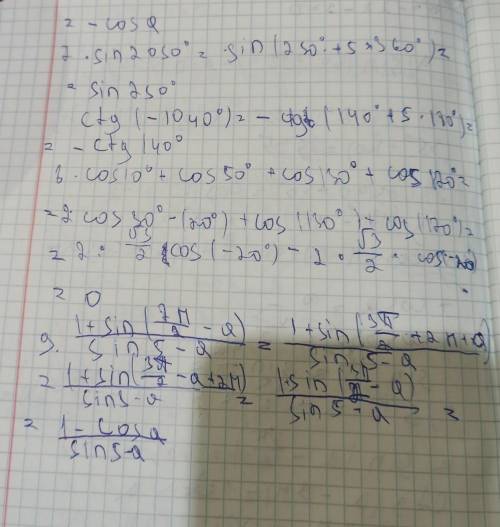 = - cos a
7. sin 2050° = sin(250° + 5 * 360°) =
= sin 250°
ctg (-1040°) = - ctg (140° + 5 · 180°) =
= - ctg 140°
8. cos 10° + cos 50° + cos 130° + cos 170° =
= 2 · cos 30° · (20°) + cos(130°) + cos(170°) =
= 2 · √3/2 cos(-20°) - 2 · √3/2 · cos(-20)
= 0
9. (1 + sin(7π/2 - a))/(sin 5 - a) = (1 + sin(3π/2 + 2π + a))/(sin 5 - a)
= (1 + sin(3π/2 - a + 2π))/(sin 5 - a) = (1 + sin(3π/2 - a))/(sin 5 - a) =
= (1 - cos a)/(sin 5 - a)